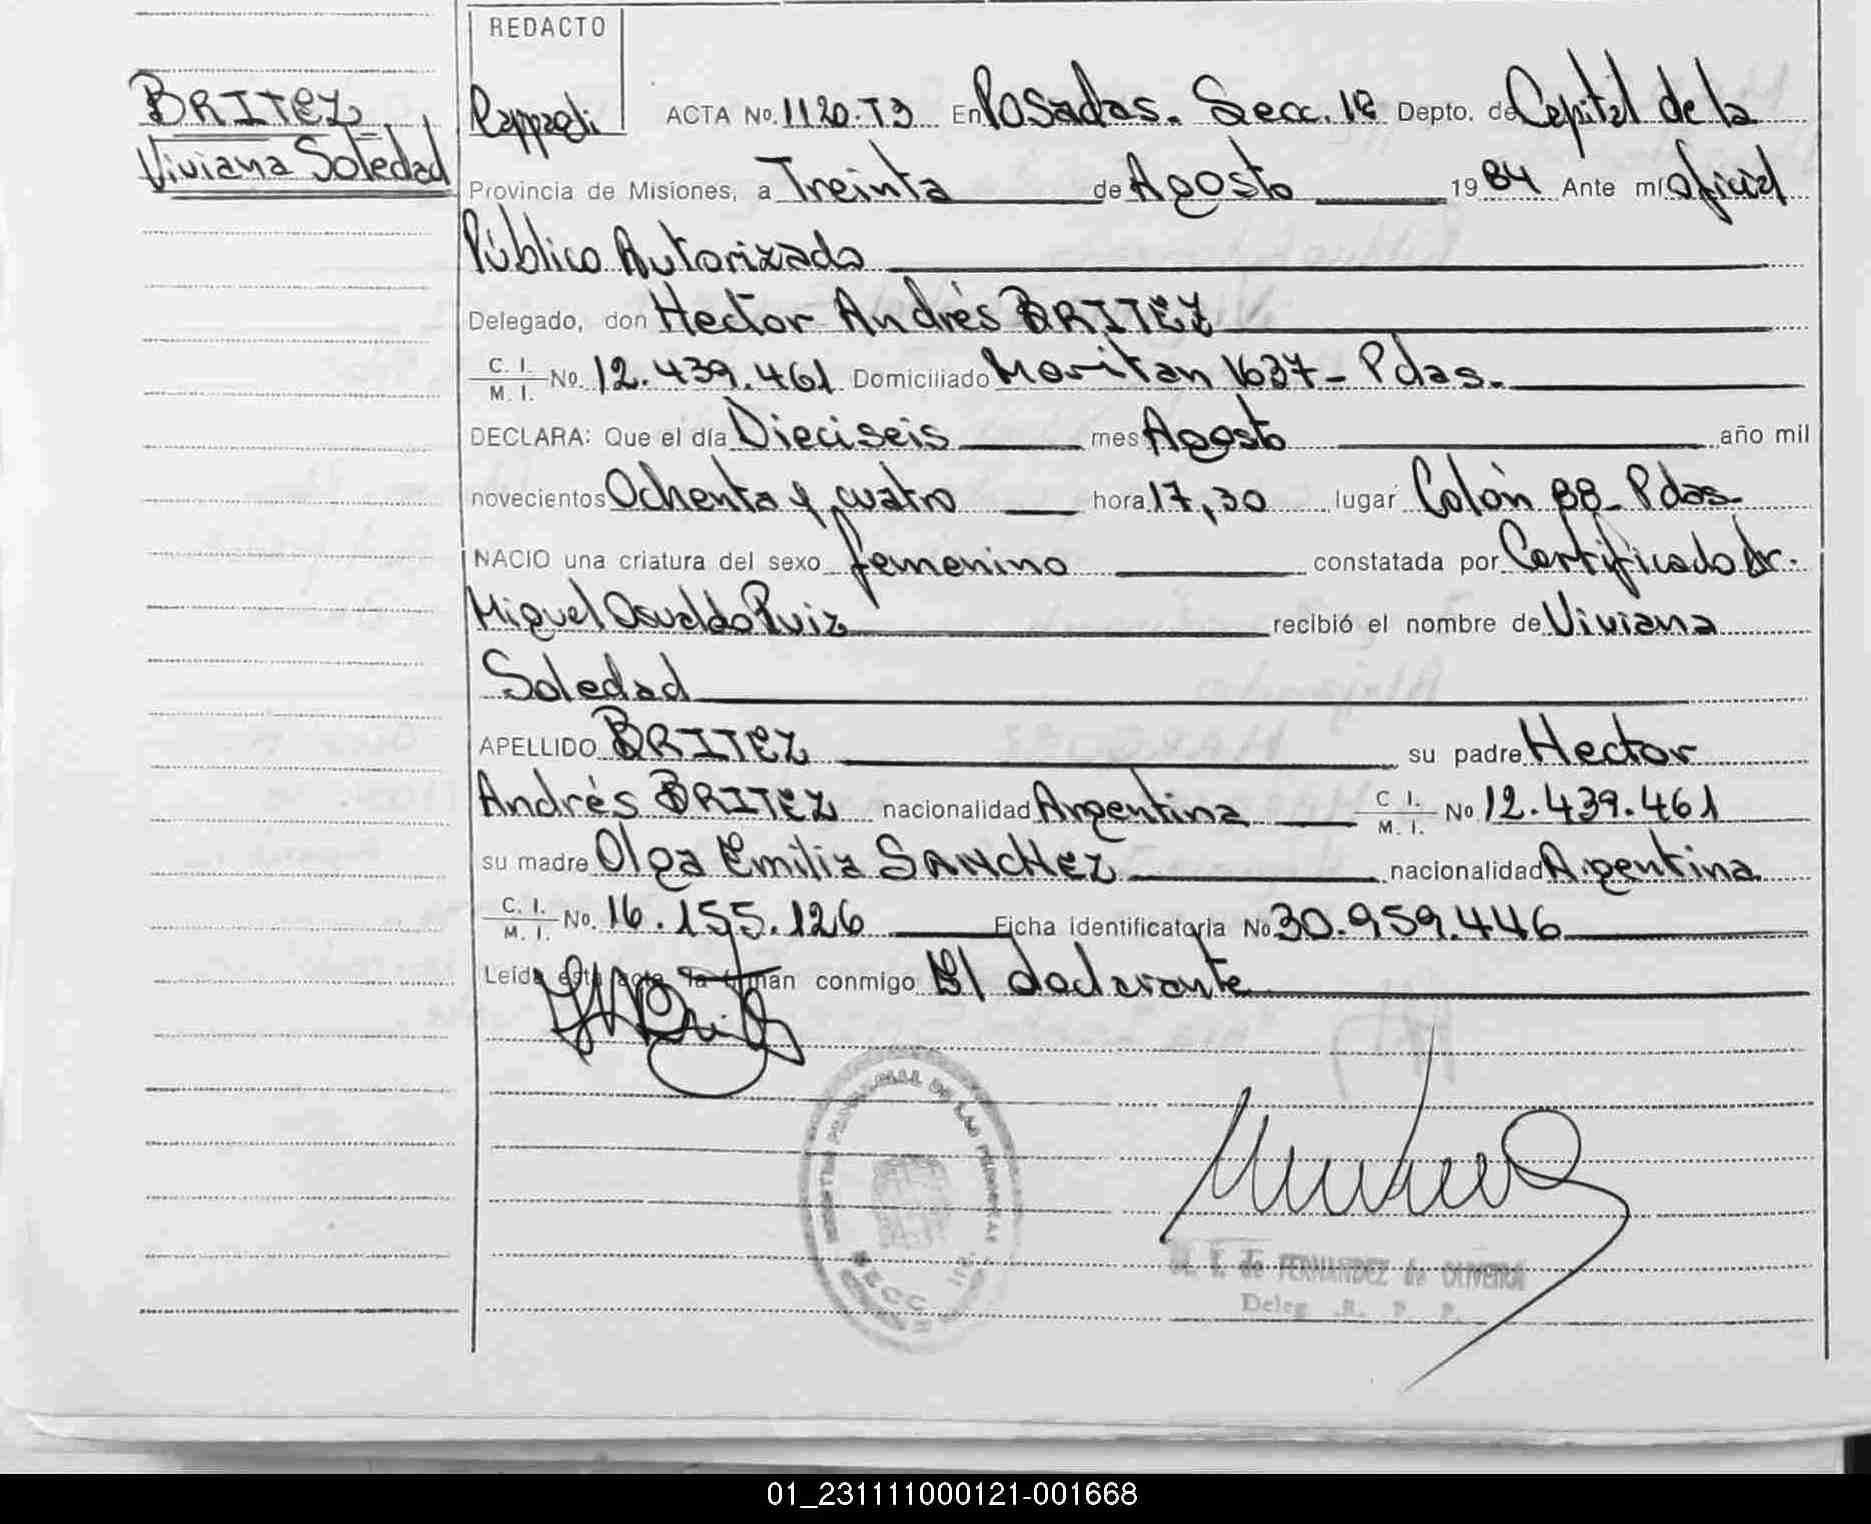 REDACTO
BRITEZ
Viviana Soledad
ACTA No. 1120. T3 En Posadas. Secc. 1ª Depto. de Capital de la
Provincia de Misiones, a Treinta de Agosto 19 84 Ante mí oficial
Público Autorizado
Delegado, don Hector Andrés BRITEZ
C. I. / M. I. No. 12.439.461 Domiciliado Moritan 1637 - Pdas.
DECLARA: Que el día Dieciseis mes Agosto año mil
novecientos Ochenta y cuatro hora 17,30 lugar Colón 88 - Pdas.
NACIO una criatura del sexo femenino constatada por Certificado Dr.
Miguel Osvaldo Ruiz recibió el nombre de Viviana
Soledad
APELLIDO BRITEZ su padre Hector
Andrés BRITEZ nacionalidad Argentina C. I. / M. I. No 12.439.461
su madre Olga Emilia SANCHEZ nacionalidad Argentina
C. I. / M. I. No. 16.155.126 Ficha identificatoria No 30.959.446
Leída esta acta la firman conmigo El declarante
DE LAS PERSONAS
SECC
de FERNANDEZ de OLIVEIRA
Deleg. R. P. P.
01_231111000121-001668